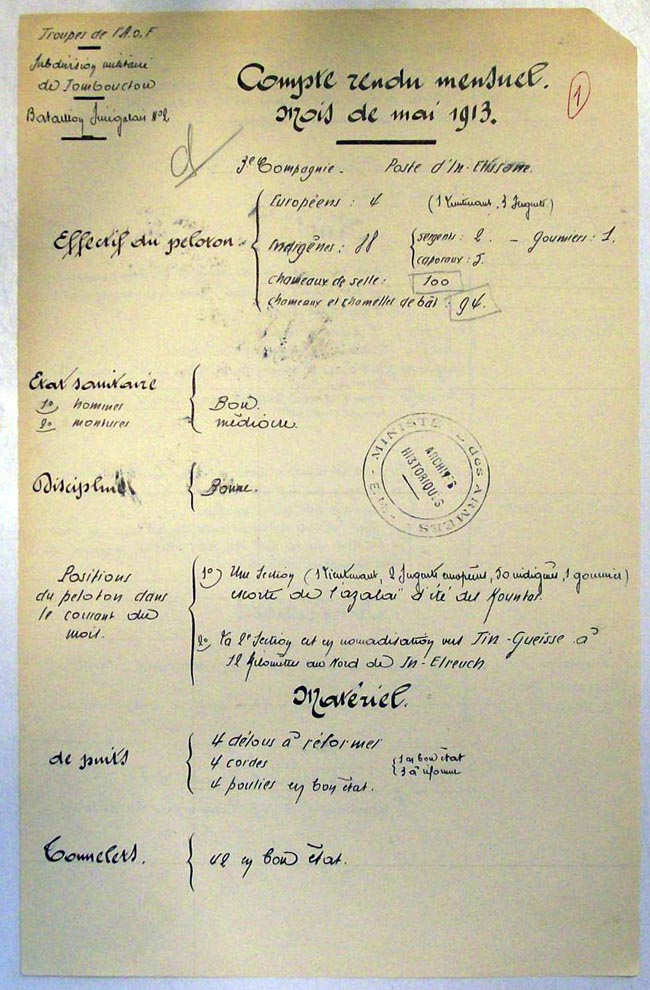 Troupes de l'A.O.F
Subdivision militaire
de Tombouctou
Bataillon Sénégalais N°2
Compte rendu mensuel.
Mois de mai 1913.
1
3e Compagnie. Poste d'In-
Effectif du peloton
Européens : 4 (1 lieutenant, 3 sergents)
Indigènes : 88
sergents : 2. - goumiers : 1.
caporaux : 5.
chameaux de selle : 100
chameaux et chamelles de bât : 94.
Etat sanitaire
1° hommes Bon.
2° montures médiocre.
Discipline Bonne.
MINISTÈRE des ARMÉES
ARCHIVES
HISTORIQUES
Positions
du peloton dans
le courant du
mois.
1°) Une section (1 lieutenant, 2 sergents européens, 50 indigènes, 1 goumier)
escorte de l'azalaï d'été des Kountas.
2° La 2e section est en nomadisation vers Tin-Gueisse à
12 kilomètres au Nord de In-Elreuch.
Matériel.
de puits
4 délous à réformer
4 cordes
1 en bon état
3 à réformer
4 poulies en bon état.
Tonnelets. 42 en bon état.